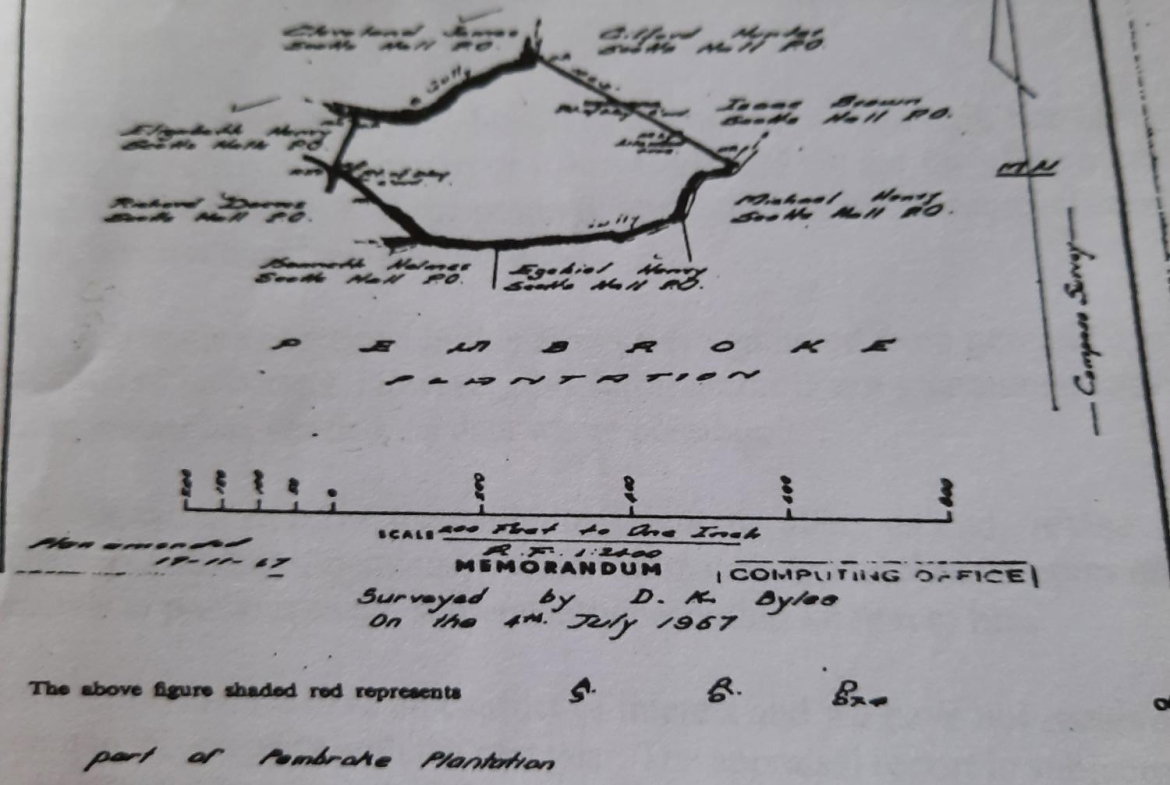 Cleveland James
Scotts Hall P.O.
Clifford Hunter
Scotts Hall P.O.
Gully
Isaac Brown
Scotts Hall P.O.
Elizabeth Henry
Scotts Hall P.O.
Rt. of Way
Richard
Scotts Hall P.O.
Michael Henry
Scotts Hall P.O.
Gully
Kenneth Holmes
Scotts Hall P.O.
Ezekiel Henry
Scotts Hall P.O.
M N
Compass Survey
PEMBROKE
PLANTATION
200 150 100 50 0 200 400 600 800
SCALE 200 Feet to One Inch
R.F. 1:2400
Plan amended
17-11-67
MEMORANDUM
COMPUTING OFFICE
Surveyed by D. K. Byles
On the 4TH. July 1967
The above figure shaded red represents A. R. P.
part of Pembroke Plantation